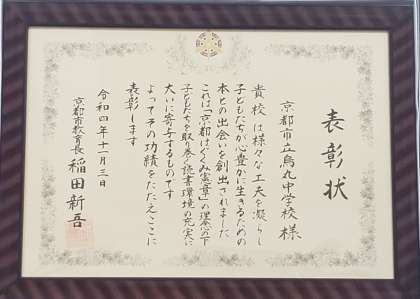 表彰状
京都市立烏丸中学校様
貴校は様々な工夫を凝らし
子どもたちが心豊かに生きるための
本との出会いを創出されました
これは「京都はぐくみ憲章」の理念の下
子どもたちを取り巻く読書環境の充実に
大いに寄与するものです
よってその功績をたたえここに
表彰します
令和四年十一月三日
京都市教育長 稲田新吾